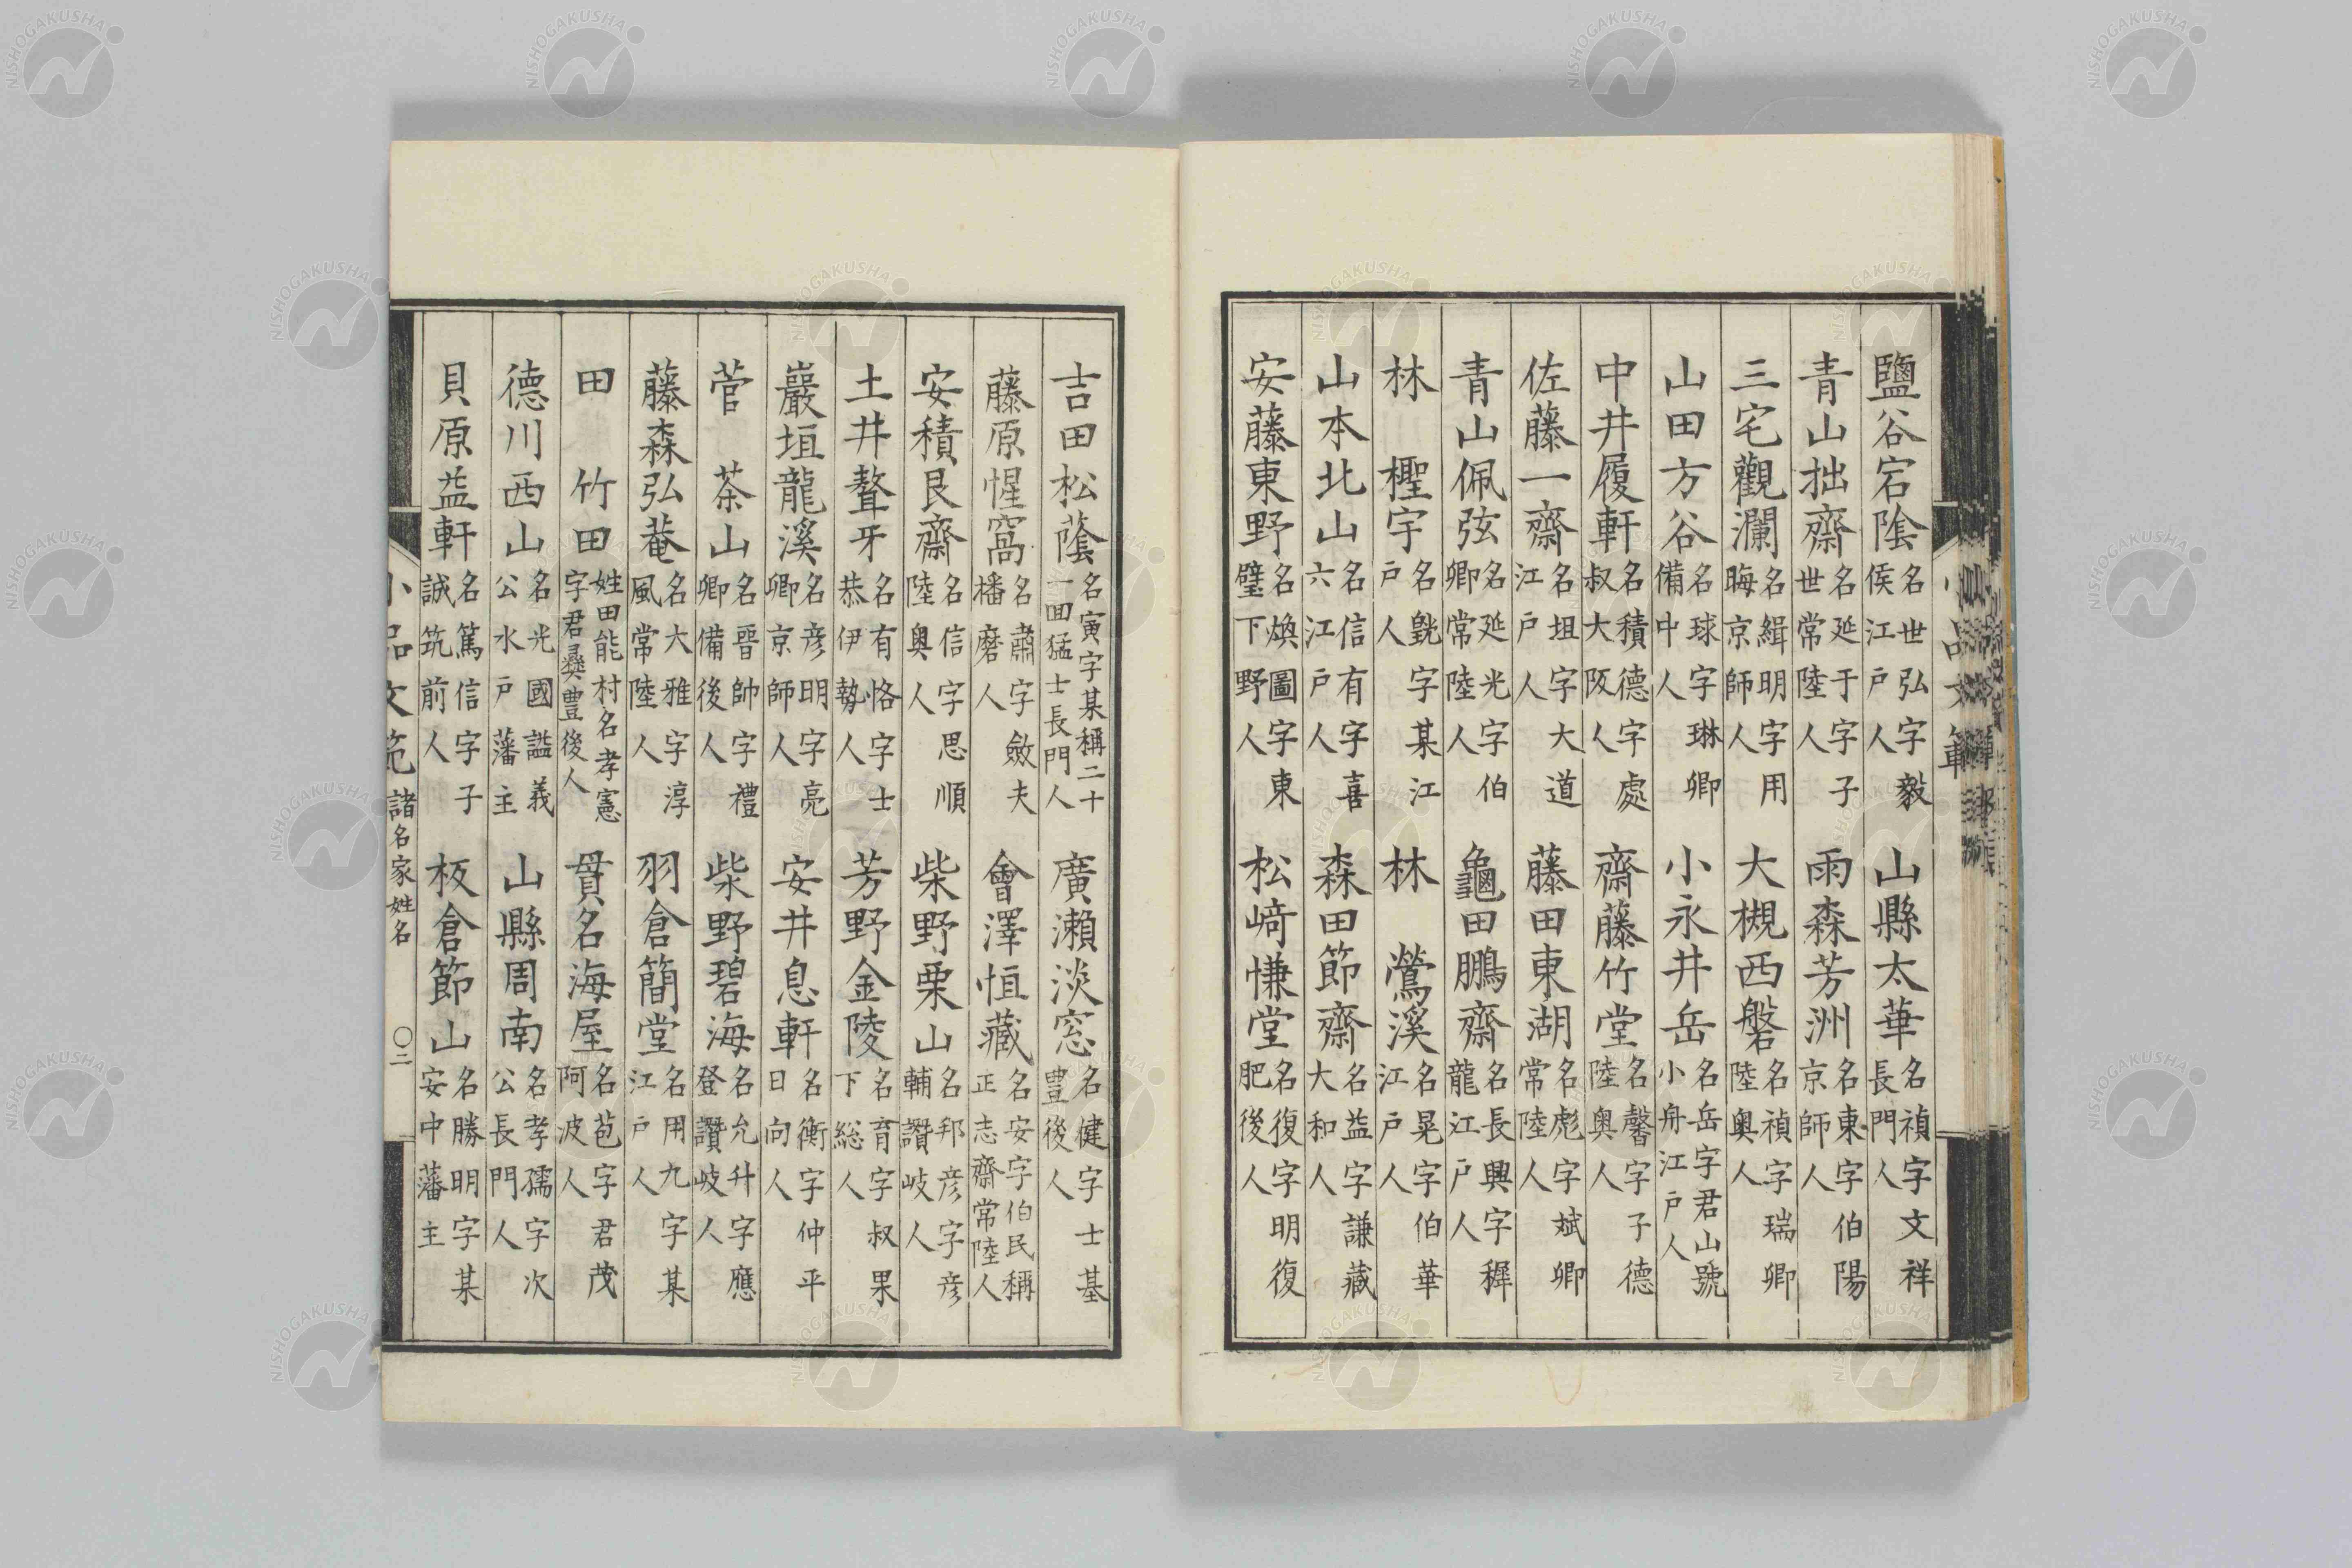 鹽谷宕陰 名世弘字毅侯江戶人 山縣太華 名禎字文祥長門人
青山拙齋 名延于字子世常陸人 雨森芳洲 名東字伯陽京師人
三宅觀瀾 名緝明字用晦京師人 大槻西磐 名禎字瑞卿陸奧人
山田方谷 名球字琳卿備中人 小永井岳 名岳字君山號小舟江戶人
中井履軒 名積德字處叔大阪人 齋藤竹堂 名馨字子德陸奧人
佐藤一齋 名坦字大道江戶人 藤田東湖 名彪字斌卿常陸人
青山佩弦 名延光字伯卿常陸人 龜田鵬齋 名長興字穉龍江戶人
林檉宇 名皝字某江戶人 林鶯溪 名晃字伯華江戶人
山本北山 名信有字喜六江戶人 森田節齋 名益字謙藏大和人
安藤東野 名煥圖字東壁下野人 松﨑慊堂 名復字明復肥後人
吉田松蔭 名寅字某稱二十一回猛士長門人 廣瀨淡窓 名健字士基豊後人
藤原惺窩 名肅字斂夫播磨人 會澤恒藏 名安字伯民稱正志齋常陸人
安積艮齋 名信字思順陸奧人 柴野栗山 名邦彦字彦輔讚岐人
土井聱牙 名有恪字士恭伊勢人 芳野金陵 名育字叔果下総人
巖垣龍溪 名彦明字亮卿京師人 安井息軒 名衡字仲平日向人
菅茶山 名晉帥字禮卿備後人 柴野碧海 名允升字應登讚岐人
藤森弘菴 名大雅字淳風常陸人 羽倉簡堂 名用九字某江戶人
田竹田 姓田能村名孝憲字君彜豊後人 貫名海屋 名苞字君茂阿波人
德川西山 名光國謚義公水戶藩主 山縣周南 名孝孺字次公長門人
貝原益軒 名篤信字子誠筑前人 板倉節山 名勝明字某安中藩主
小品文範 諸名家姓名 〇二